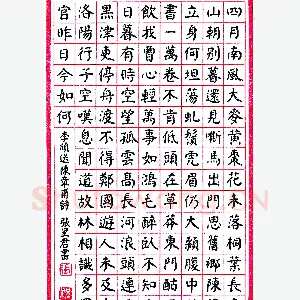 四月南風大麥黃棗花未落桐葉長
山朝別暮還見嘶馬出門思舊鄉陳
立身何坦蕩虬鬚虎眉仍大顙腹中
書一萬卷不肯低頭在草莽東門酤
飲我曹心輕萬事如鴻毛醉臥不知
日暮有時空望孤雲高長河浪頭連
黑津吏停舟渡不得鄭國遊人未及
洛陽行子空嘆息聞道故林相識多
官昨日今如何
李頎送陳章甫詩 張里君書